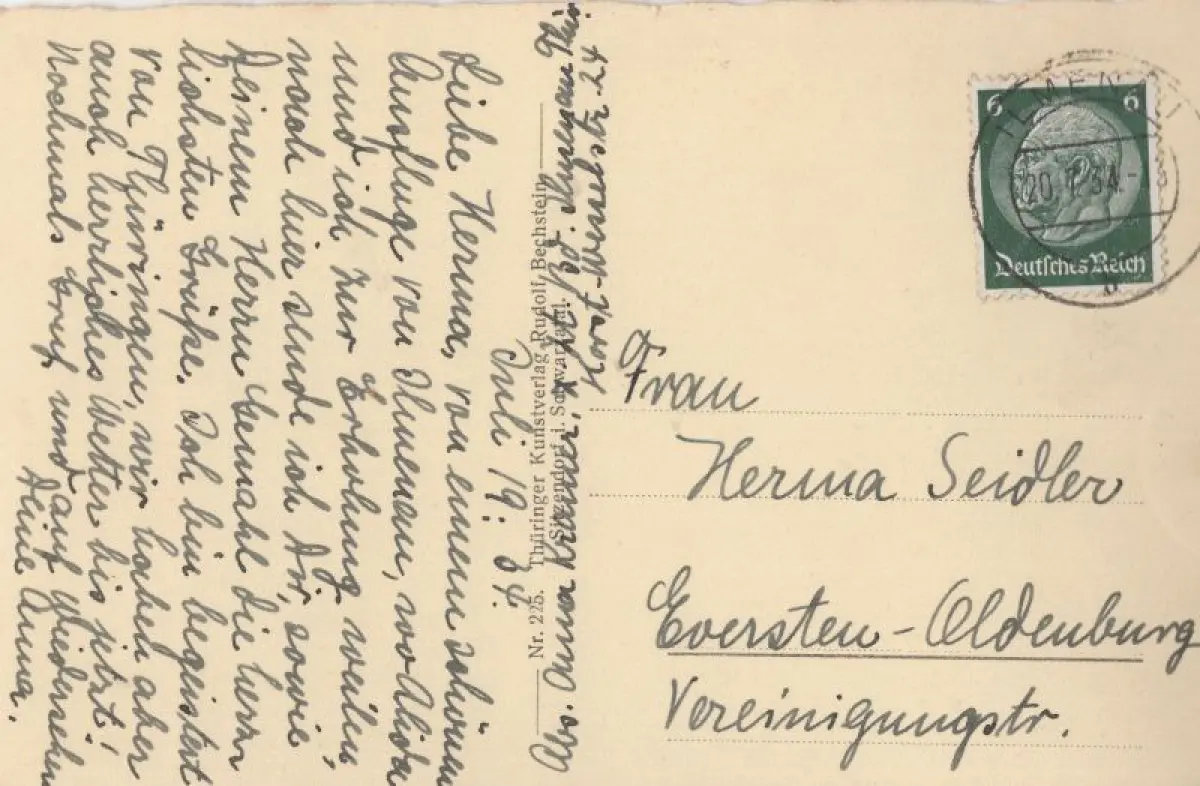 Abs. Anna Kramer, z. Zt. Bd. Ilmenau Thür.
Horst-Wesselstr. 24
Juli 19. 34.
Liebe Herma, von einem schönen
Ausfluge von Ilmenau, wo Alida
und ich zur Erholung weilen,
nach hier sende ich Dir, sowie
Deinem Herrn Gemahl die herz
lichsten Grüße. Ich bin begeistert
von Thüringen, wir haben aber
auch herrliches Wetter bis jetzt!
Nochmals Gruß und auf Wiedersehen
Deine Anna.
Nr. 225. Thüringer Kunstverlag Rudolf Bechstein
Sitzendorf i. Schwarzatal.
6 6
Deutsches Reich
20.7.34.-
b
Frau
Herma Seidler
Eversten-Oldenburg
Vereinigungstr.